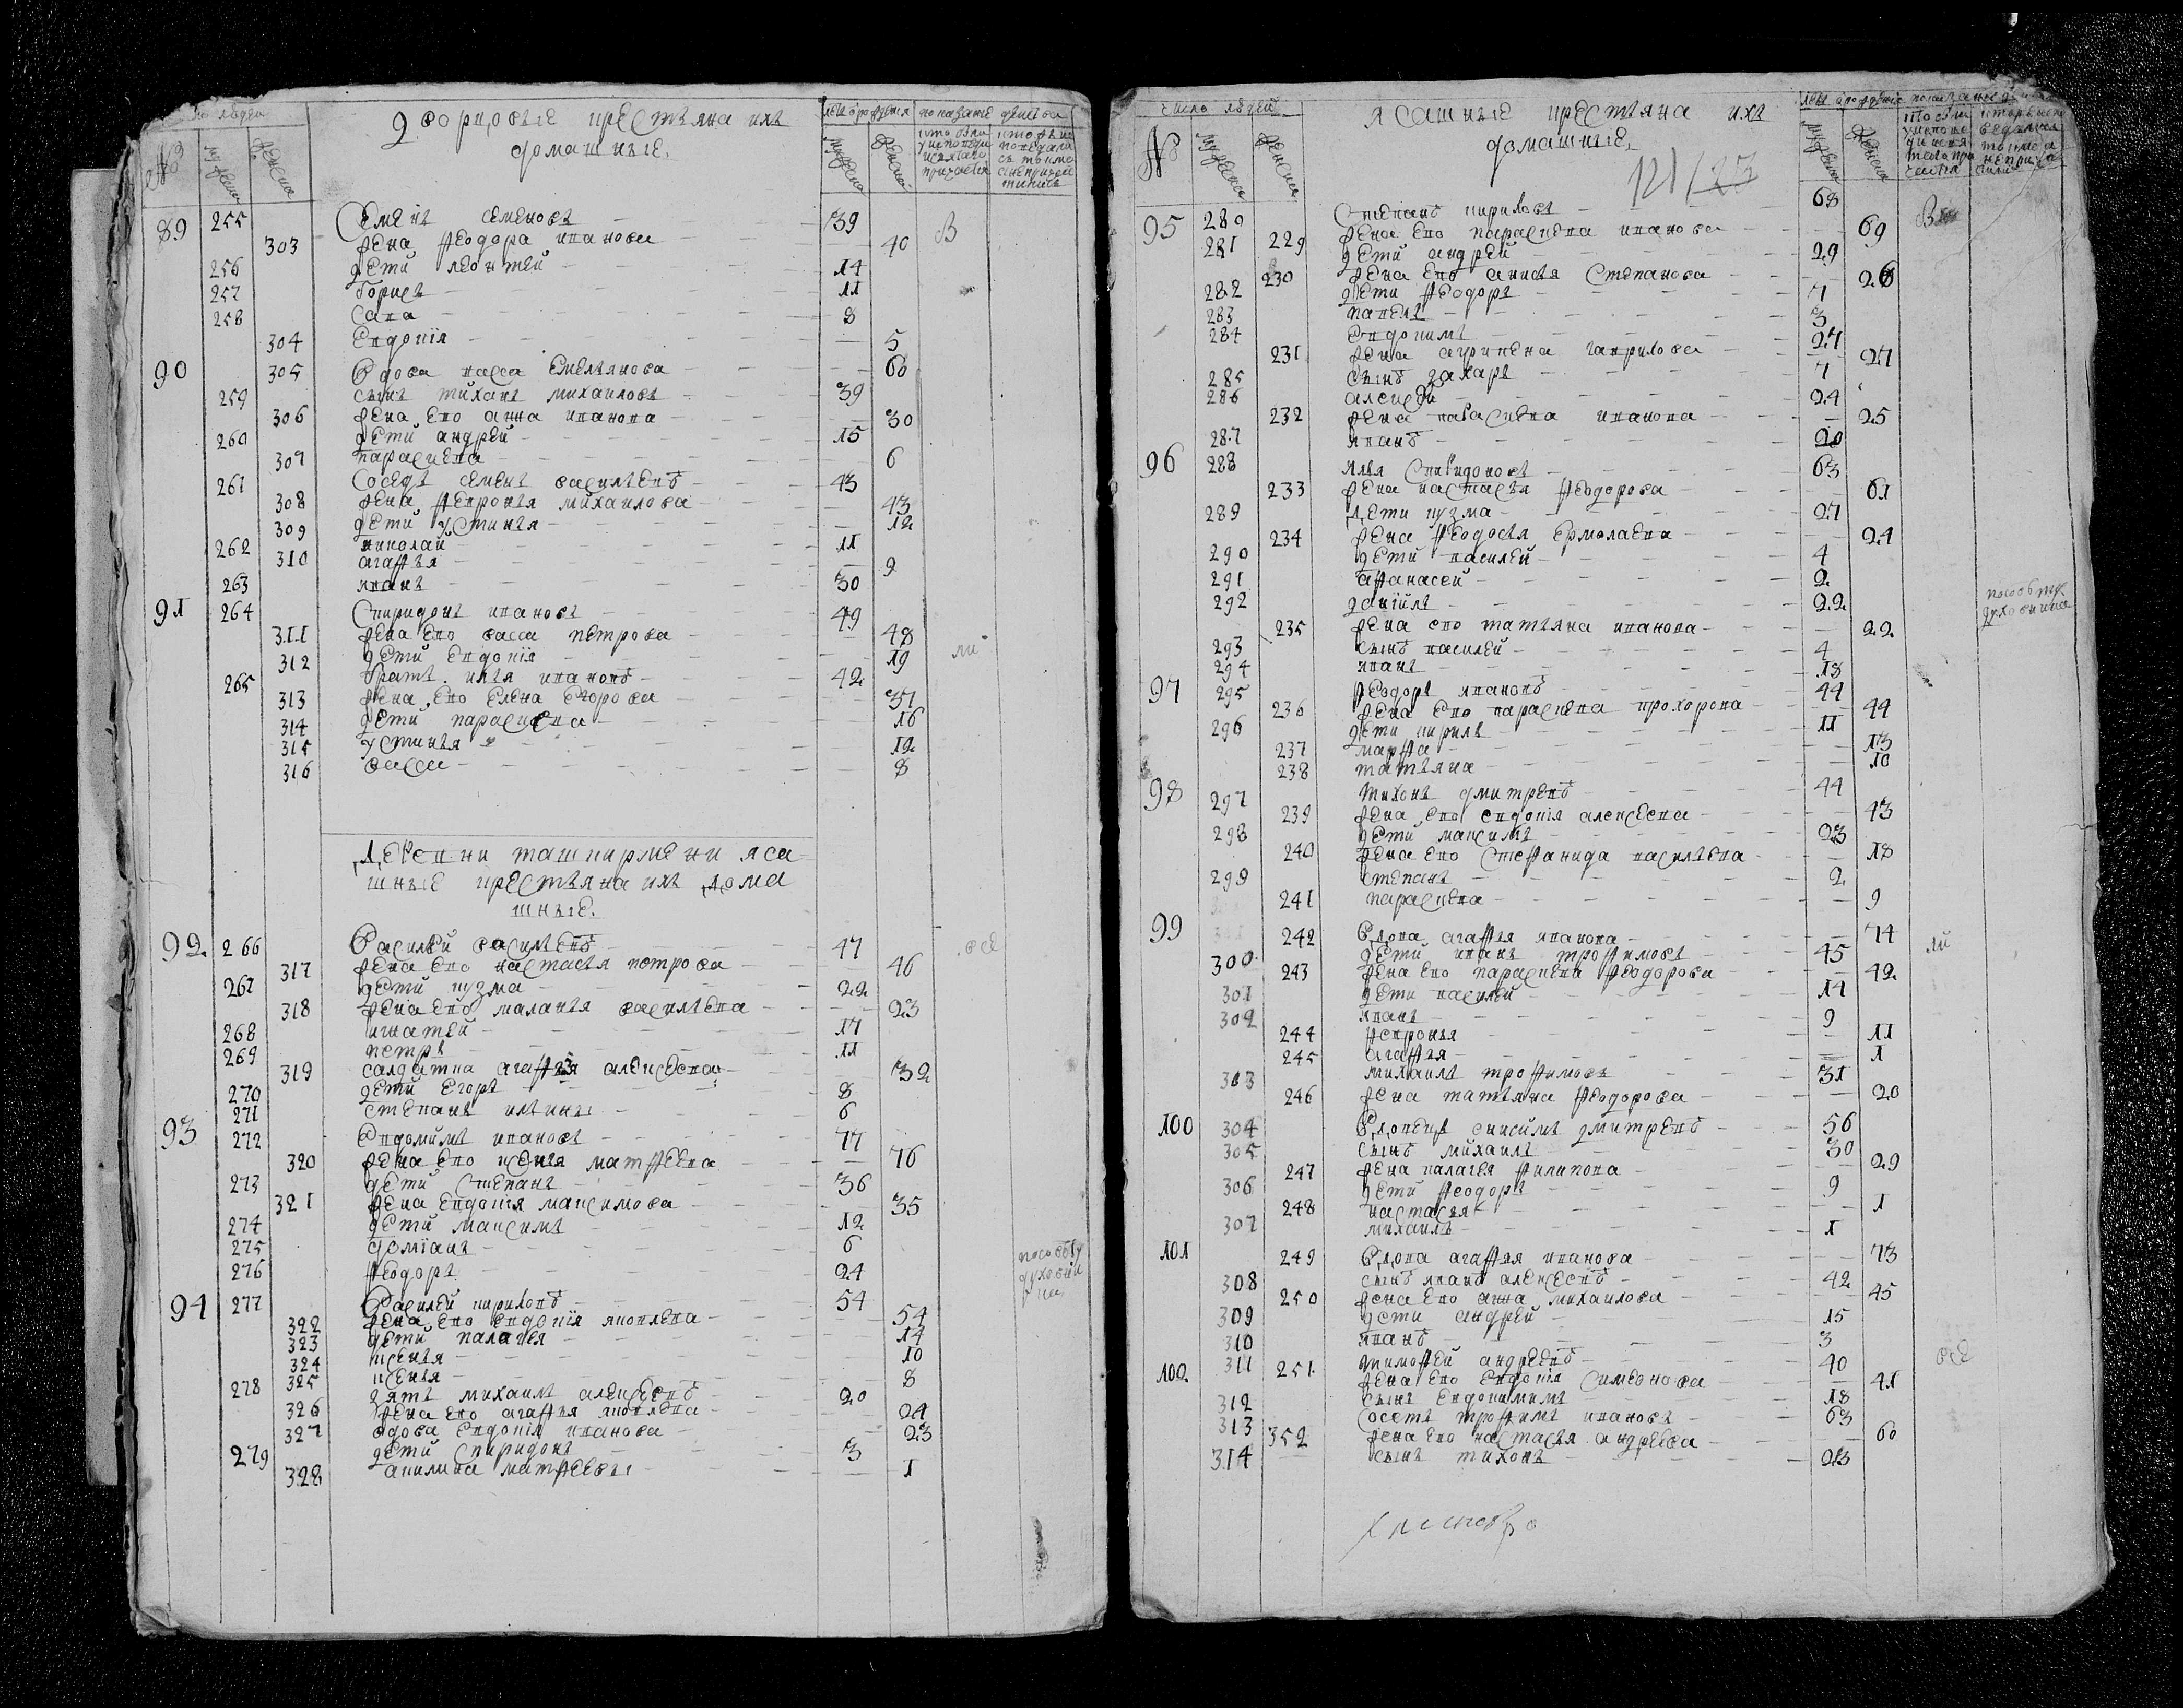 дворцовые крестьяна ихъ
домашные.
№ мужеска женска
89 255 Семенъ семеновъ 39
303 жена Феодора иванова 40
256 дети леонтей 14
257 борисъ 11
258 Сава 8
304 Евдокія 5
90 305 Вдова васса Емельянова 60
259 сынъ тиханъ михаиловъ 39
306 жена Ево анна иванова 30
260 дети андрей 15
307 параскева 6
261 Соседъ семенъ васильевъ 43
308 жена Февронья михаилова 43
309 дети устинья 12
262 николай 11
310 агафья 9
263 иванъ 30
91 264 Спиридонъ ивановъ 49
311 жена Ево васса петрова 48
312 дети Евдокія 19
265 братъ илья ивановъ 42
313 жена Ево Елена Егорова 37
314 дети параскева 16
315 устинья 12
316 васса 8
Деревни ташкирмени яса
шные крестьяна ихъ дома
шные.
92 266 Василей васильевъ 47 все
317 жена Ево настасья петрова 46
267 дети кузма 22
318 жена Ево маланья васильева 23
268 игнатей 17
269 петръ 11
319 салдатка агафья алексеева 32
270 дети Егоръ 8
271 степанъ ильины 6
93 272 Евдокимъ ивановъ 77
320 жена Ево ксенья матфеева 76
273 дети Степанъ 36
321 жена Евдокія максимова 35
274 дети максимъ 12
275 домианъ 6
276 Феодоръ 24
94 277 Василей кириловъ 54
322 жена Ево Евдокія яковлева 54
323 дети палагея 14
324 ксенья 10
325 ксенья 8
278 зять михаилъ алексеевъ 20
326 жена Ево агафья яковлева 24
327 вдова Евдокія иванова 23
279 дети Спиридонъ 3
328 акилина матфеевы 1
число людей
ясашные крестьяна ихъ
домашные.
№ мужеска женска
121/23
95 280 Степанъ кириловъ 68
229 жена Ево параскева иванова 69
281 дети андрей 29
230 жена Ево анисья Степанова 26
282 дети Феодоръ 7
283 павелъ 3
284 Евдокимъ 27
231 жена агрипена гаврилова 27
285 сынъ захаръ 7
286 алексей 24
232 жена параскева иванова 25
287 иванъ 20
96 288 илья Спиридоновъ 63
233 жена настасья Феодорова 61
289 Дети кузма 27
234 жена Феодосья Ермолаева 24
290 дети василей 4
291 афанасей 2
292 даніилъ 22
235 жена ево татьяна иванова 22
293 сынъ василей 4
294 иванъ 18
97 295 Феодоръ ивановъ 44
236 жена Ево параскева прохорова 44
296 дети кирилъ 11
237 марфа 13
238 татьяна 10
98 297 тихонъ дмитревъ 44
239 жена Ево евдокія алексеева 43
298 дети максимъ 23
240 жена Ево Стефанида васильева 18
299 степанъ 2
241 параскева 9
99 242 Вдова агафья иванова 74
300 дети иванъ трофимовъ 45
243 жена Ево параскева Феодорова 42
301 дети василей 14
302 иванъ 9
244 Февронья 11
245 агафья 1
303 михаилъ трофимовъ 31
246 жена татьяна Феодорова 20
100 304 Вдовецъ анисимъ дмитревъ 56
305 сынъ михаилъ 30
247 жена палагея Филипова 29
306 дети Феодоръ 9
248 настасья 1
307 михаилъ 1
101 249 Вдова агафья иванова 73
308 сынъ иванъ алексеевъ 42
250 жена Ево анна михаилова 45
309 дети андрей 15
310 иванъ 3
102 311 тимофей андреевъ 40 все
251 жена Ево Евдокія Симеонова 41
312 сынъ Евдокимъ 18
313 Соседъ трофимъ ивановъ 63
352 жена Ево настасья андреева 60
314 сынъ тихонъ 23